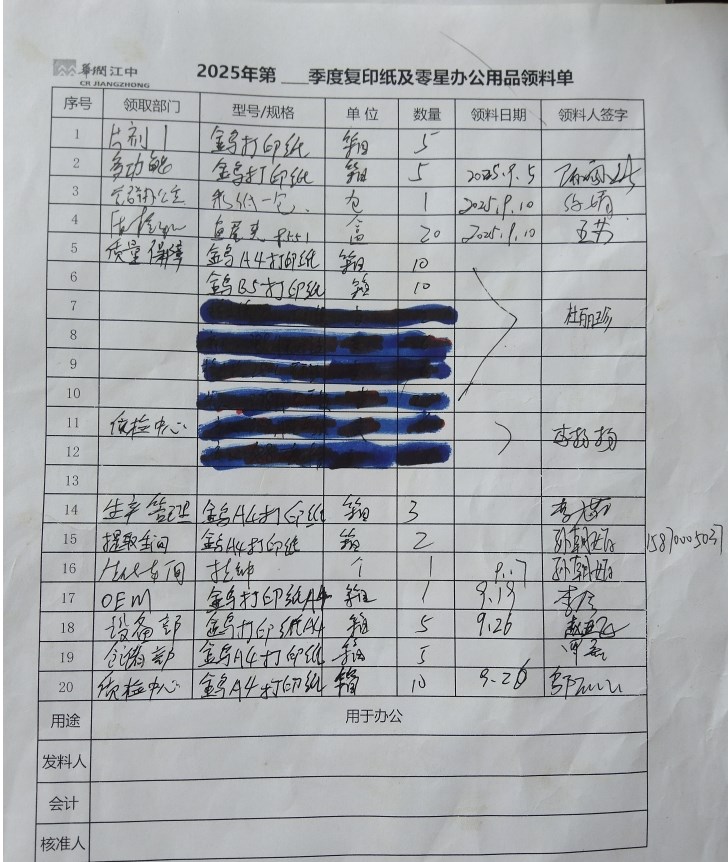 華潤江中
CR JIANGZHONG
2025年第 季度复印纸及零星办公用品领料单
序号 领取部门 型号/规格 单位 数量 领料日期 领料人签字
1 片剂1 金鸟打印纸 箱 5
2 多功能 金鸟打印纸 箱 5 2025.9.5
3 包 1 2025.9.10
4 盒 20 2025.9.10
5 质量保障 金鸟A4打印纸 箱 10
6 金鸟B5打印纸 箱 10
7 杜丽珍
8
9
10
11 质检中心
12 李扬扬
13
14 生产管理 金鸟A4打印纸 箱 3
15 提取车间 金鸟A4打印纸 箱 2 15870005037
16 个 1 9.17
17 OEM 金鸟打印纸A4 箱 1 9.19
18 设备部 金鸟打印纸A4 箱 5 9.26
19 仓储部 金鸟A4打印纸 箱 5
20 质检中心 金鸟A4打印纸 箱 10 9.26
用途 用于办公
发料人
会计
核准人